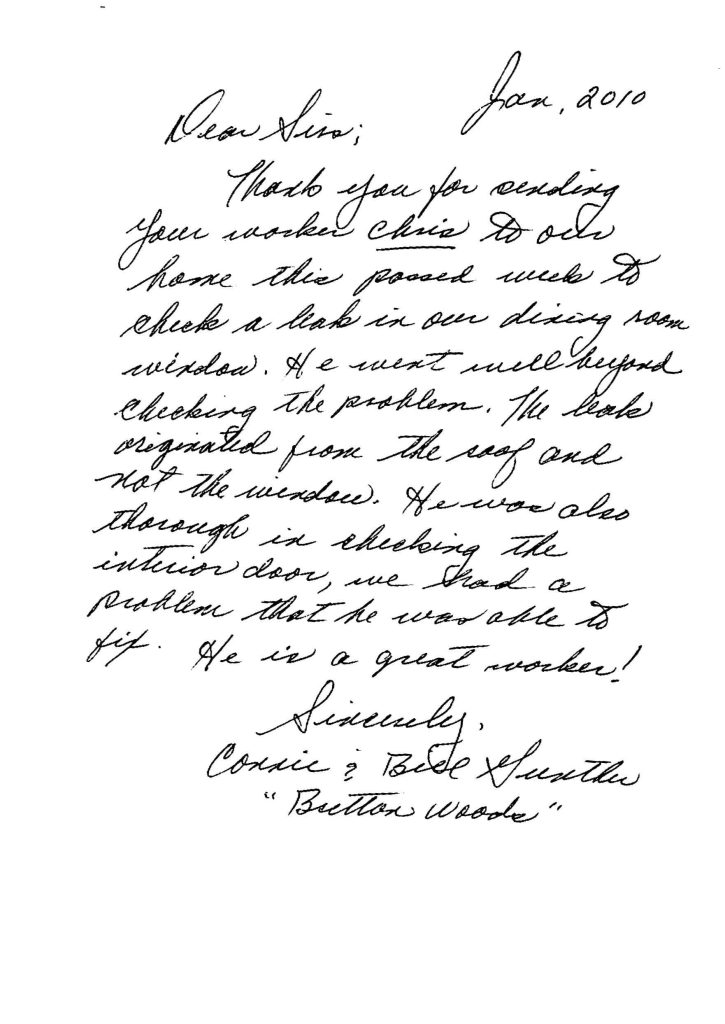 Jan, 2010
Dear Sirs;
Thank you for sending
your worker Chris to our
home this passed week to
check a leak in our dining room
window. He went well beyond
checking the problem. The leak
originated from the roof and
not the window. He was also
thorough in checking the
interior door, we had a
problem that he was able to
fix. He is a great worker!
Sincerely,
Connie & Bill Gunther
"Bretton Woods"